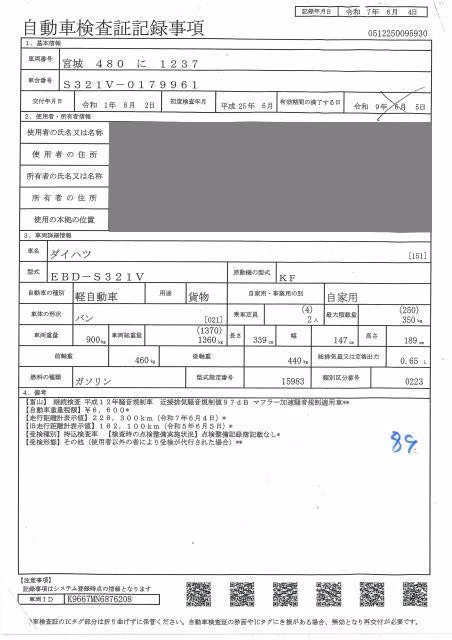 記録年月日 令和 7年 6月 4日
自動車検査証記録事項
0512250095930
1. 基本情報
車両番号 宮城 480 に 1237
車台番号 S321V-0179961
交付年月日 令和 1年 8月 2日 初度検査年月 平成 25年 6月 有効期間の満了する日 令和 9年 6月 5日
2. 使用者・所有者情報
使用者の氏名又は名称
使用者の住所
所有者の氏名又は名称
所有者の住所
使用の本拠の位置
3. 車両詳細情報
車名 ダイハツ [151]
型式 EBD-S321V 原動機の型式 KF
自動車の種別 軽自動車 用途 貨物 自家用・事業用の別 自家用
車体の形状 バン [021] 乗車定員 (4) 2人 最大積載量 (250) 350kg
車両重量 900kg 車両総重量 (1370) 1360kg 長さ 339cm 幅 147cm 高さ 189cm
前軸重 460kg 後軸重 440kg 総排気量又は定格出力 0.65 L
燃料の種類 ガソリン 型式指定番号 15983 類別区分番号 0223
4. 備考
【富山】 継続検査 平成12年騒音規制車 近接排気騒音規制値97dB マフラー加速騒音規制適用車**
【自動車重量税額】¥6,600*
【走行距離計表示値】228,300km(令和7年6月4日)*
【旧走行距離計表示値】162,100km(令和5年6月5日)*
【受検種別】持込検査車 【検査時の点検整備実施状況】点検整備記録簿記載なし*
【受検形態】その他(使用者以外の者により受検が代行された場合)**
89
【注意事項】
記録事項はシステム登録時点の情報となります
車両ID K9667MN6876208
*車検査証のICタグ部分は折り曲げずに保管ください。自動車検査証の券面やICタグにき損がある場合、無効となり再交付が必要です。